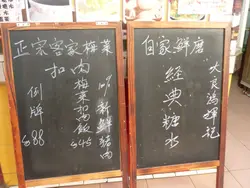 正宗客家梅菜
扣肉
例牌
$88
梅菜扣肉飯
$45
新鮮豬肉
自家鮮磨
經典糖水
大良鴻輝記